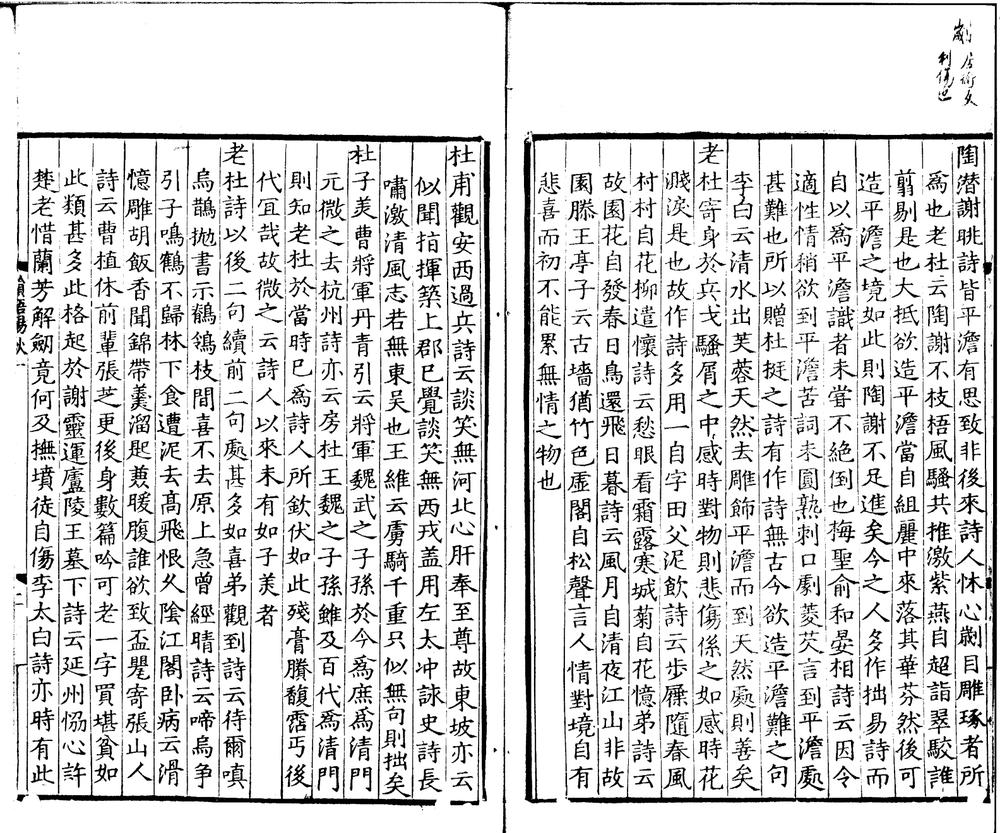 劌居衛久
利傷也
陶潛謝眺詩皆平澹有思致非後來詩人怵心劌目雕琢者所
爲也老杜云陶謝不枝梧風騷共推激紫燕自超詣翠駮誰
翦剔是也大抵欲造平澹當自組麗中來落其華芬然後可
造平澹之境如此則陶謝不足進矣今之人多作拙易詩而
自以爲平澹識者未甞不絕倒也梅聖俞和晏相詩云因令
適性情稍欲到平澹苦詞未圓熟刺口劇菱芡言到平澹處
甚難也所以贈杜挺之詩有作詩無古今欲造平澹難之句
李白云清水出芙蓉天然去雕飾平澹而到天然處則善矣
老杜寄身於兵戈騷屑之中感時對物則悲傷係之如感時花
濺淚是也故作詩多用一自字田父泥飲詩云步屧隨春風
村村自花柳遣懷詩云愁眼看霜露寒城菊自花憶弟詩云
故園花自發春日鳥還飛日暮詩云風月自清夜江山非故
園滕王亭子云古墻猶竹色虛閣自松聲言人情對境自有
悲喜而初不能累無情之物也
杜甫觀安西過兵詩云談笑無河北心肝奉至尊故東坡亦云
似聞指揮築上郡已覺談笑無西戎盖用左太冲詠史詩長
嘯激清風志若無東吴也王維云虜騎千重只似無句則拙矣
杜子美曹將軍丹青引云將軍魏武之子孫於今爲庶爲清門
元微之去杭州詩亦云房杜王魏之子孫雖及百代爲清門
則知老杜於當時已爲詩人所欽伏如此殘膏賸馥霑丐後
代冝哉故微之云詩人以來未有如子美者
老杜詩以後二句續前二句處甚多如喜弟觀到詩云待爾嗔
烏鵲抛書示鶺鴒枝間喜不去原上急曾經晴詩云啼烏争
引子鳴鶴不歸林下食遭泥去高飛恨久陰江閣卧病云滑
憶雕胡飯香聞錦帶羹溜匙兼暖腹誰欲致盃罌寄張山人
詩云曹植休前輩張芝更後身數篇吟可老一字買堪貧如
此類甚多此格起於謝靈運廬陵王墓下詩云延州恊心許
楚老惜蘭芳解劒竟何及撫墳徒自傷李太白詩亦時有此
韻語陽秋一
二